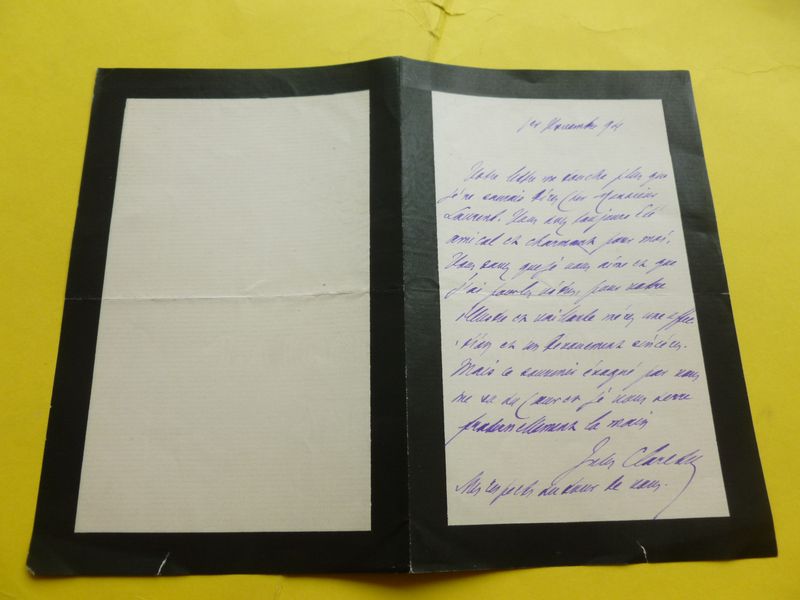 1er Novembre 94
Votre lettre me touche plus que
je ne saurais dire, cher Monsieur
Laurent. Vous avez toujours été
amical et charmant pour moi.
Vous savez que je vous aime et que
j'ai pour les vôtres, pour votre
illustre et vaillante mère, une affec-
tion et un dévouement sincères.
Mais le souvenir évoqué par vous
me va au cœur et je vous serre
fraternellement la main
Jules Claretie
Mes respects autour de vous.